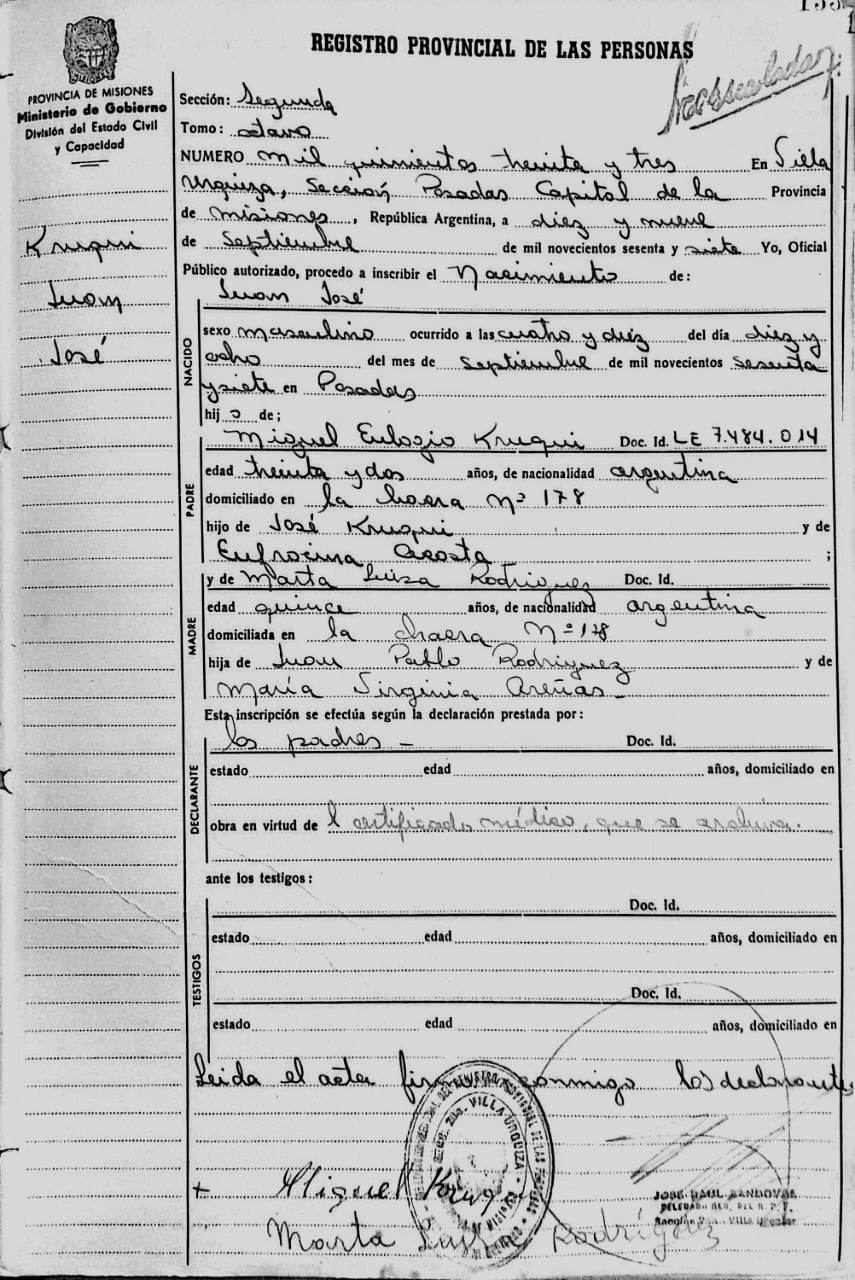 REGISTRO PROVINCIAL DE LAS PERSONAS
PROVINCIA DE MISIONES
Ministerio de Gobierno
División del Estado Civil
y Capacidad
Kruqui
Juan
José
Sección: Segunda
Tomo: octavo
NUMERO mil quinientos treinta y tres En Villa
Urquiza, Sección Posadas Capital de la Provincia
de misiones, República Argentina, a diez y nueve
de Septiembre de mil novecientos sesenta y siete Yo, Oficial
Público autorizado, procedo a inscribir el Nacimiento de:
NACIDO
Juan José
sexo masculino ocurrido a las cuatro y diez del día diez y
ocho del mes de septiembre de mil novecientos sesenta
y siete en Posadas
hij o de;
PADRE
Miguel Eulogio Kruqui Doc. Id. LE 7.484.014
edad treinta y dos años, de nacionalidad argentina
domiciliado en la chacra Nº 178
hijo de José Kruqui y de
Eufrocina Acosta ;
MADRE
y de Marta Luisa Rodriguez Doc. Id.
edad quince años, de nacionalidad argentina
domiciliada en la chacra Nº 178
hija de Juan Pablo Rodriguez y de
María Virginia Areñas -
Esta inscripción se efectúa según la declaración prestada por:
DECLARANTE
los padres - Doc. Id.
estado edad años, domiciliado en
obra en virtud de l certificado médico, que se archiva.
ante los testigos:
TESTIGOS
Doc. Id.
estado edad años, domiciliado en
Doc. Id.
estado edad años, domiciliado en
Leida el acta firman conmigo los declarantes
VILLA URQUIZA
+ Miguel
JOSE RAUL SANDOVAL
Marta Luisa Rodríguez